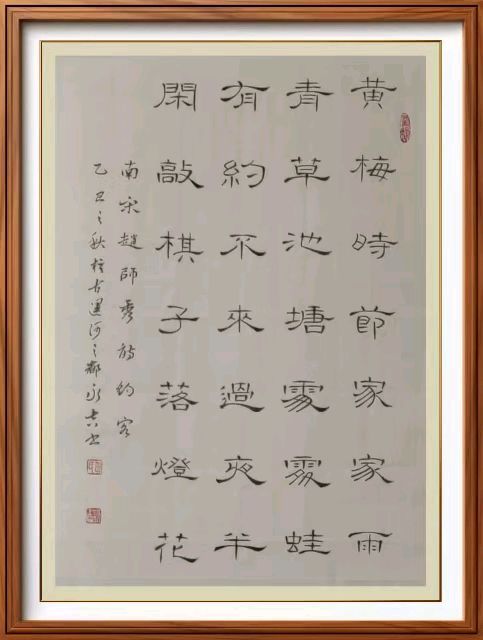 黃梅時節家家雨
青草池塘處處蛙
有約不來過夜半
閑敲棋子落燈花
南宋趙師秀詩約客
乙丑之秋於古運河之永吉书